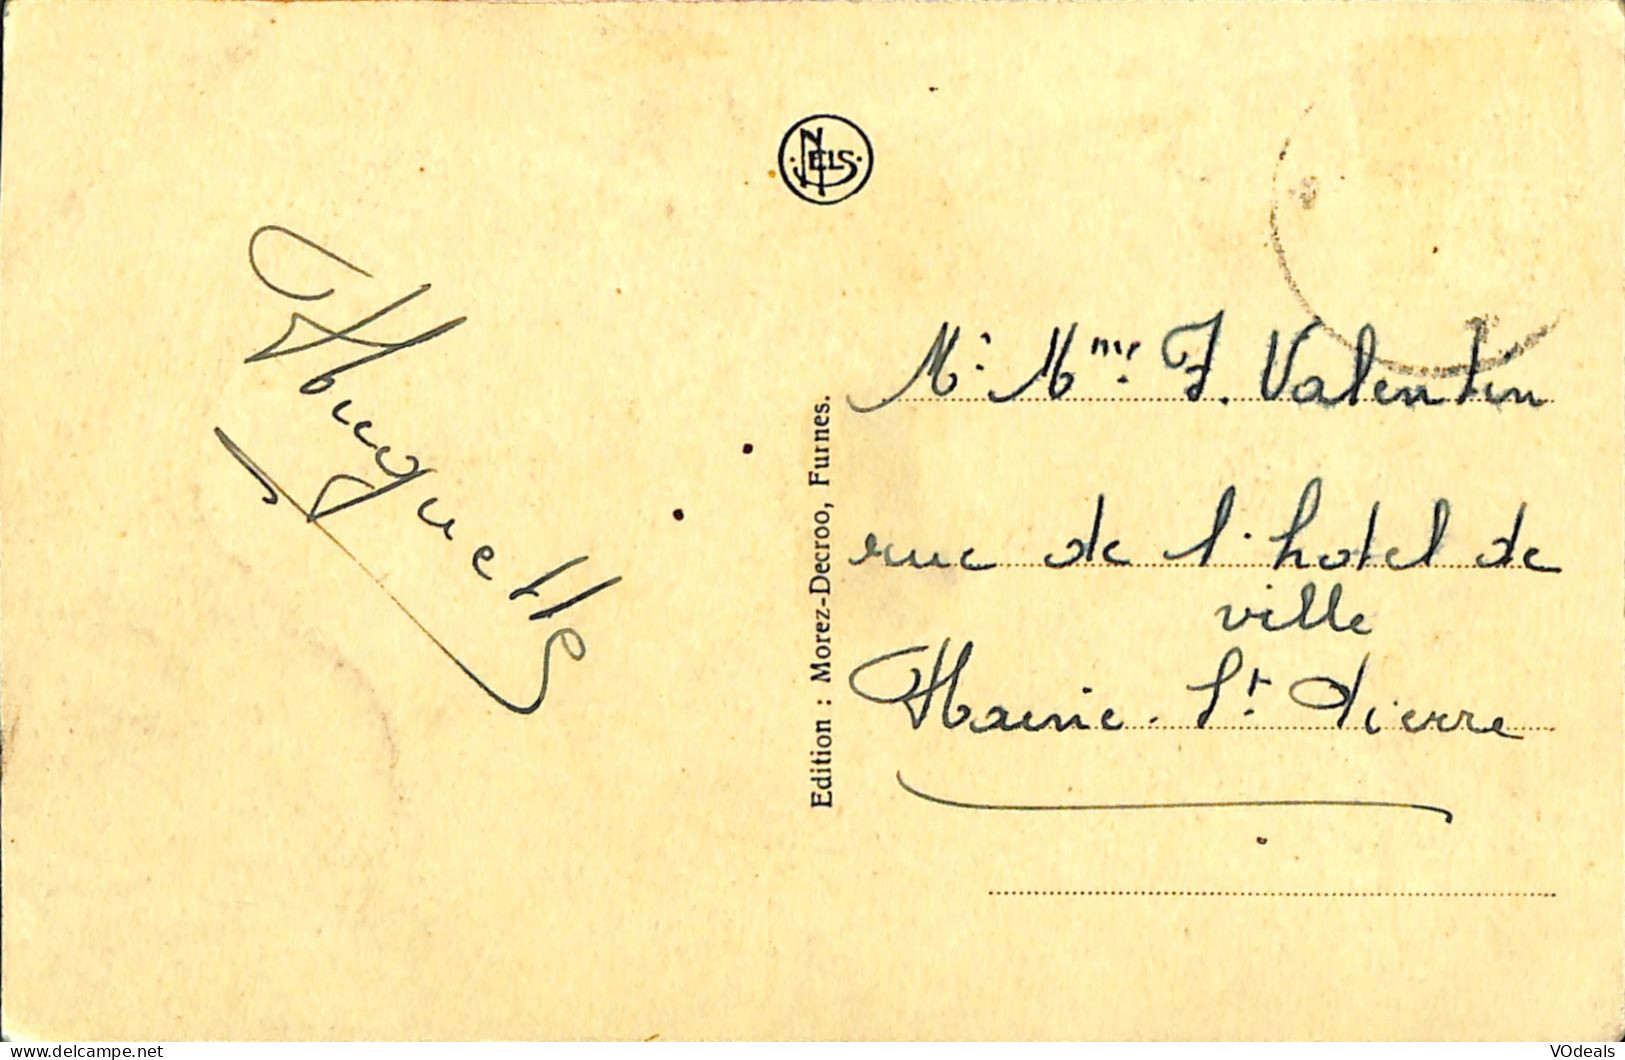 NELS
Huguette
Edition : Morez-Decroo, Furnes.
Mr Mme J. Valentin
rue de l'hotel de
ville
Haine-St Pierre
https://www.delcampe.net
VOdeals